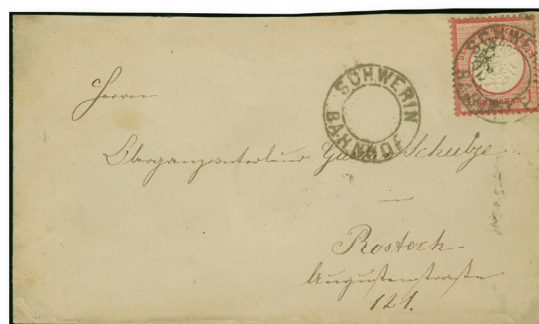 SCHWERIN
BAHNHOF
Herrn
Schultze
in
Rostock
Augustenstraße
121.